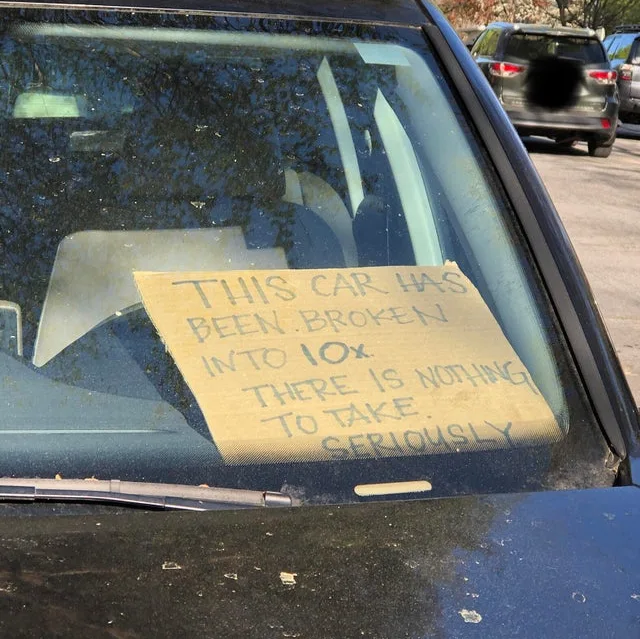 THIS CAR HAS
BEEN BROKEN
INTO 10x
THERE IS NOTHING
TO TAKE.
SERIOUSLY